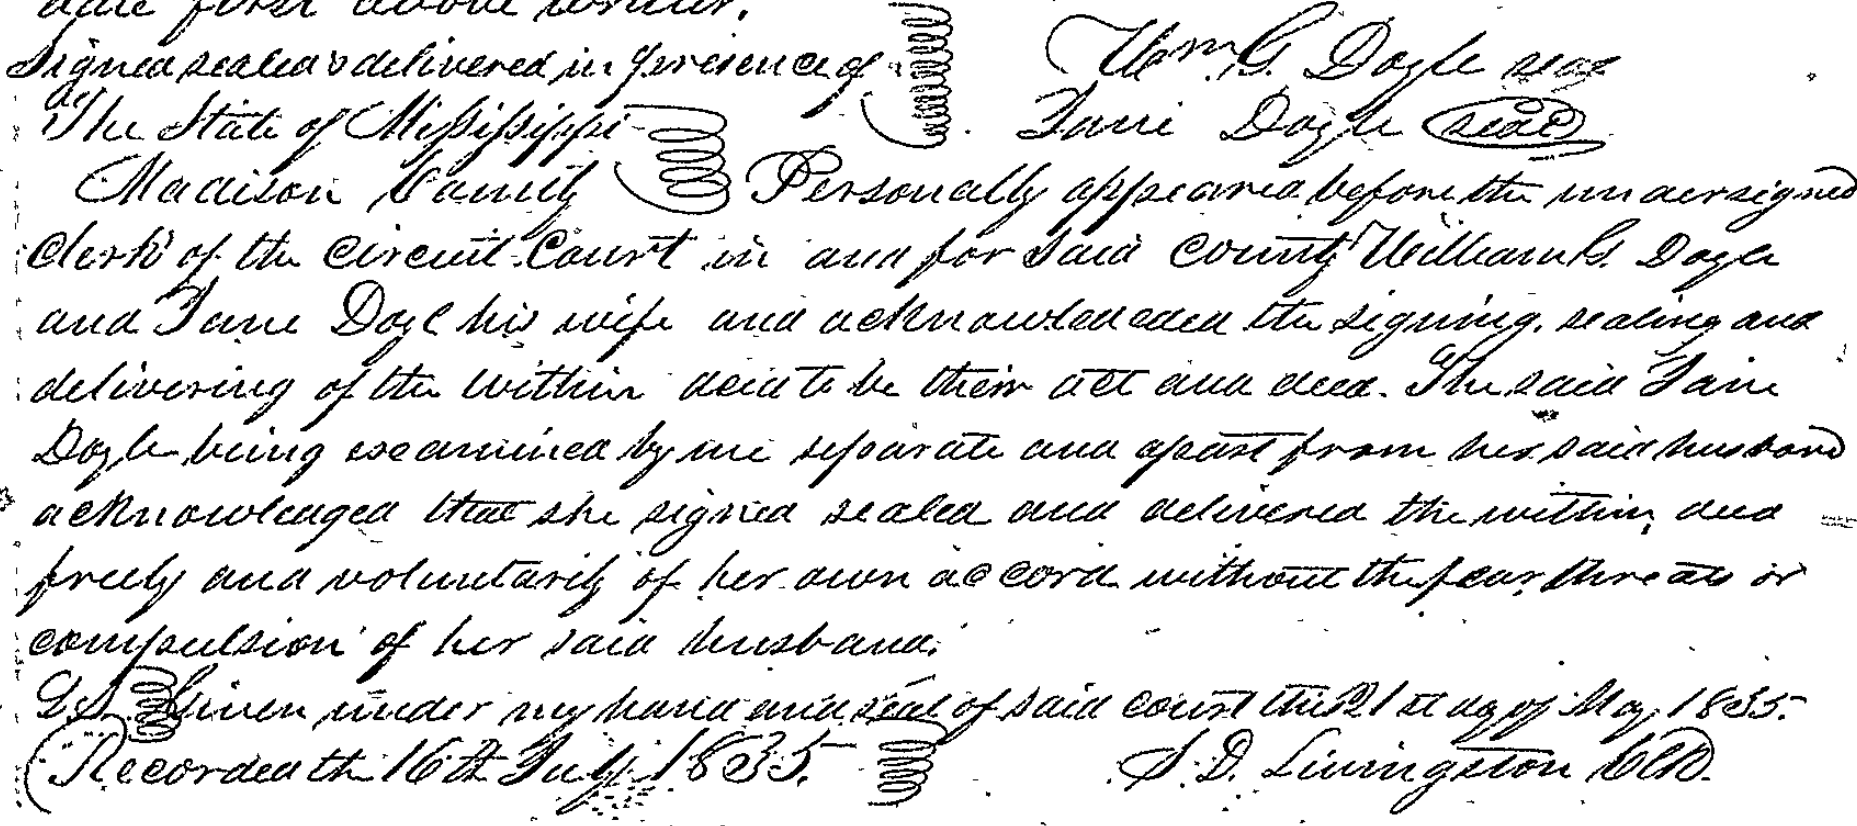 date first above written.
Signed sealed & delivered in presence of Wm. G. Doyle seal
The State of Mississippi Jane Doyle seal
Madison County Personally appeared before the undersigned
Clerk of the Circuit Court in and for said County William G. Doyle
and Jane Doyle his wife and acknowlededed the signing, sealing and
delivering of the within deed to be their act and deed. The said Jane
Doyle being examined by me separate and apart from her said husband
acknowledged that she signed sealed and delivered the within deed
freely and voluntarily of her own accord without the fear, threats or
compulsion of her said husband.
L.S. Given under my hand and seal of said court this 21st day of May 1835.
Recorded th 16th July 1835. S. D. Livingston Clk.